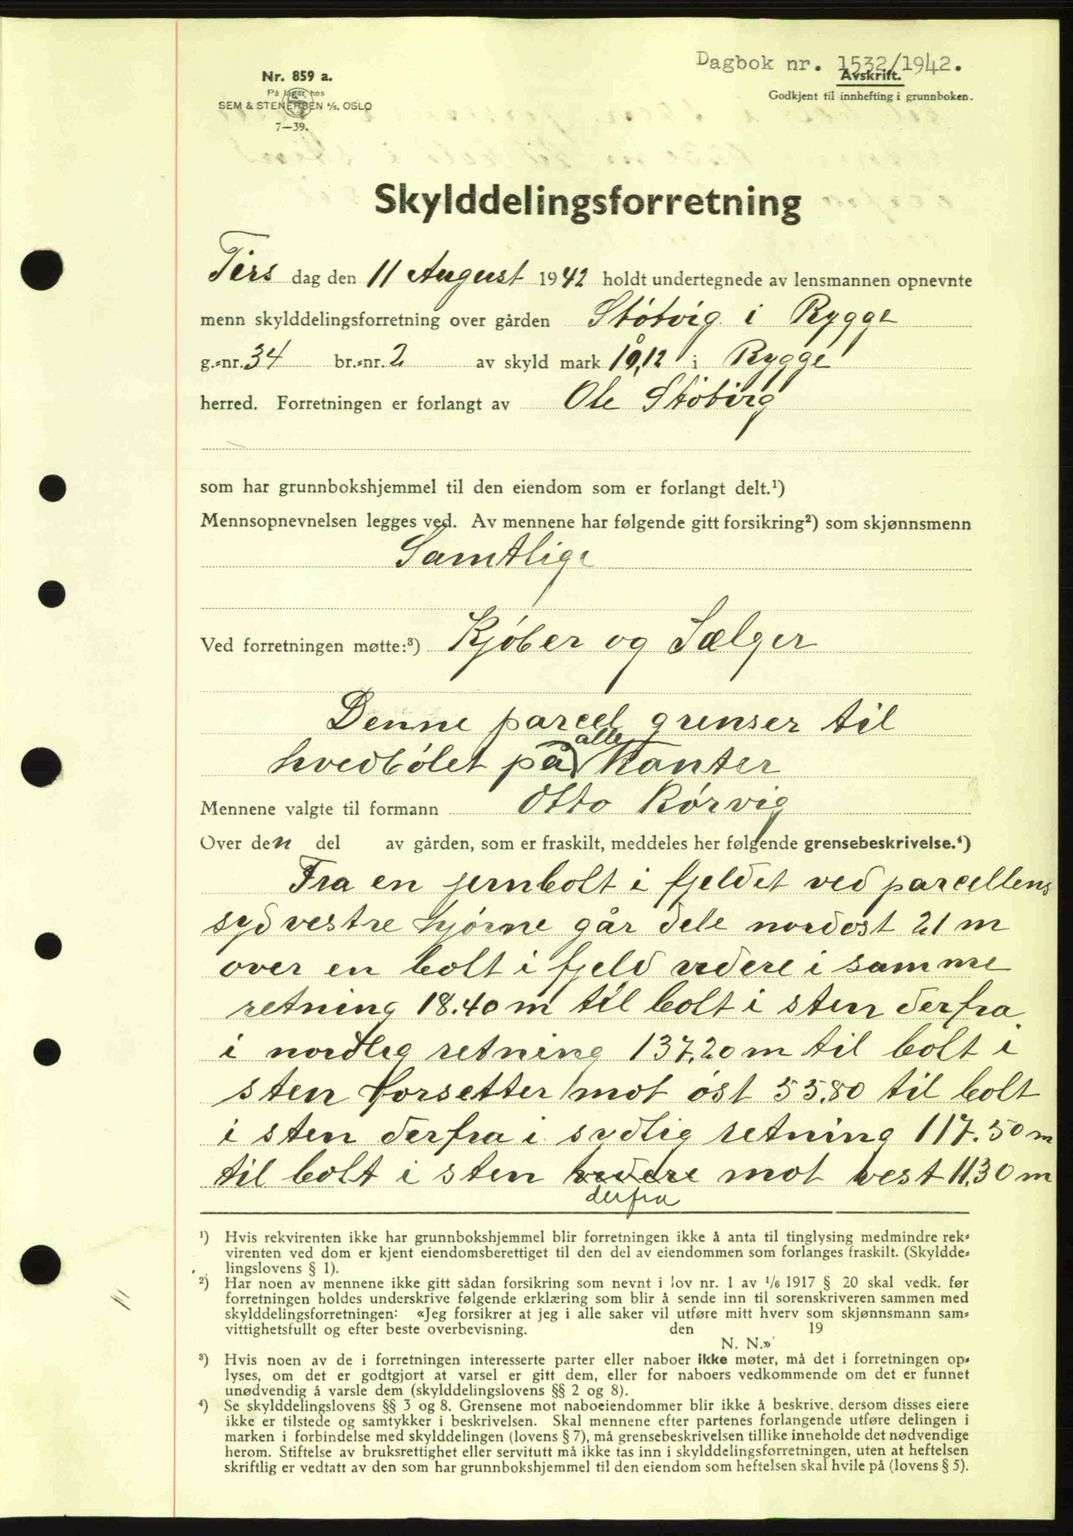 Dagbok nr. 1532/1942.
Nr. 859 a.
På lager hos
SEM & STENERSEN A/S, OSLO
7—39.
Avskrift.
Godkjent til innhefting i grunnboken.
Skylddelingsforretning
Tirs dag den 11 August 1942 holdt undertegnede av lensmannen opnevnte
menn skylddelingsforretning over gården Støtvig i Rygge
g.-nr. 34 br.-nr. 2 av skyld mark 10,12 i Rygge
herred. Forretningen er forlangt av Ole Støtvig
som har grunnbokshjemmel til den eiendom som er forlangt delt.¹)
Mennsopnevnelsen legges ved. Av mennene har følgende gitt forsikring²) som skjønnsmenn
Samtlige
Ved forretningen møtte:³) Kjøber og Sælger
Denne parcel grenser til
hvedbølet på alle kanter
Mennene valgte til formann Otto Rørvig
Over den del av gården, som er fraskilt, meddeles her følgende grensebeskrivelse.⁴)
Fra en jernbolt i fjeldet ved parcellens
sydvestre hjørne går dele nordost 21 m
over en bolt i fjeld videre i samme
retning 18.40 m til bolt i sten derfra
i nordlig retning 137.20 m til bolt i
sten forsetter mot øst 55.80 til bolt
i sten derfra i sydlig retning 117.50 m
til bolt i sten videre mot vest 11.30 m
derfra
¹) Hvis rekvirenten ikke har grunnbokshjemmel blir forretningen ikke å anta til tinglysing medmindre rek-
virenten ved dom er kjent eiendomsberettiget til den del av eiendommen som forlanges fraskilt. (Skyldde-
lingslovens § 1).
²) Har noen av mennene ikke gitt sådan forsikring som nevnt i lov nr. 1 av 1/6 1917 § 20 skal vedk. før
forretningen holdes underskrive følgende erklæring som blir å sende inn til sorenskriveren sammen med
skylddelingsforretningen: «Jeg forsikrer at jeg i alle saker vil utføre mitt hverv som skjønnsmann sam-
vittighetsfullt og efter beste overbevisning. den 19
N. N.»
³) Hvis noen av de i forretningen interesserte parter eller naboer ikke møter, må det i forretningen op-
lyses, om det er godtgjort at varsel er gitt dem, eller for naboers vedkommende om det er funnet
unødvendig å varsle dem (skylddelingslovens §§ 2 og 8).
⁴) Se skylddelingslovens §§ 3 og 8. Grensene mot naboeiendommer blir ikke å beskrive, dersom disses eiere
ikke er tilstede og samtykker i beskrivelsen. Skal mennene efter partenes forlangende utføre delingen i
marken i forbindelse med skylddelingen (lovens § 7), må grensebeskrivelsen tillike inneholde det nødvendige
herom. Stiftelse av bruksrettighet eller servitutt må ikke tas inn i skylddelingsforretningen, uten at heftelsen
skriftlig er vedtatt av den som har grunnbokshjemmel til den eiendom som heftelsen skal hvile på (lovens § 5).